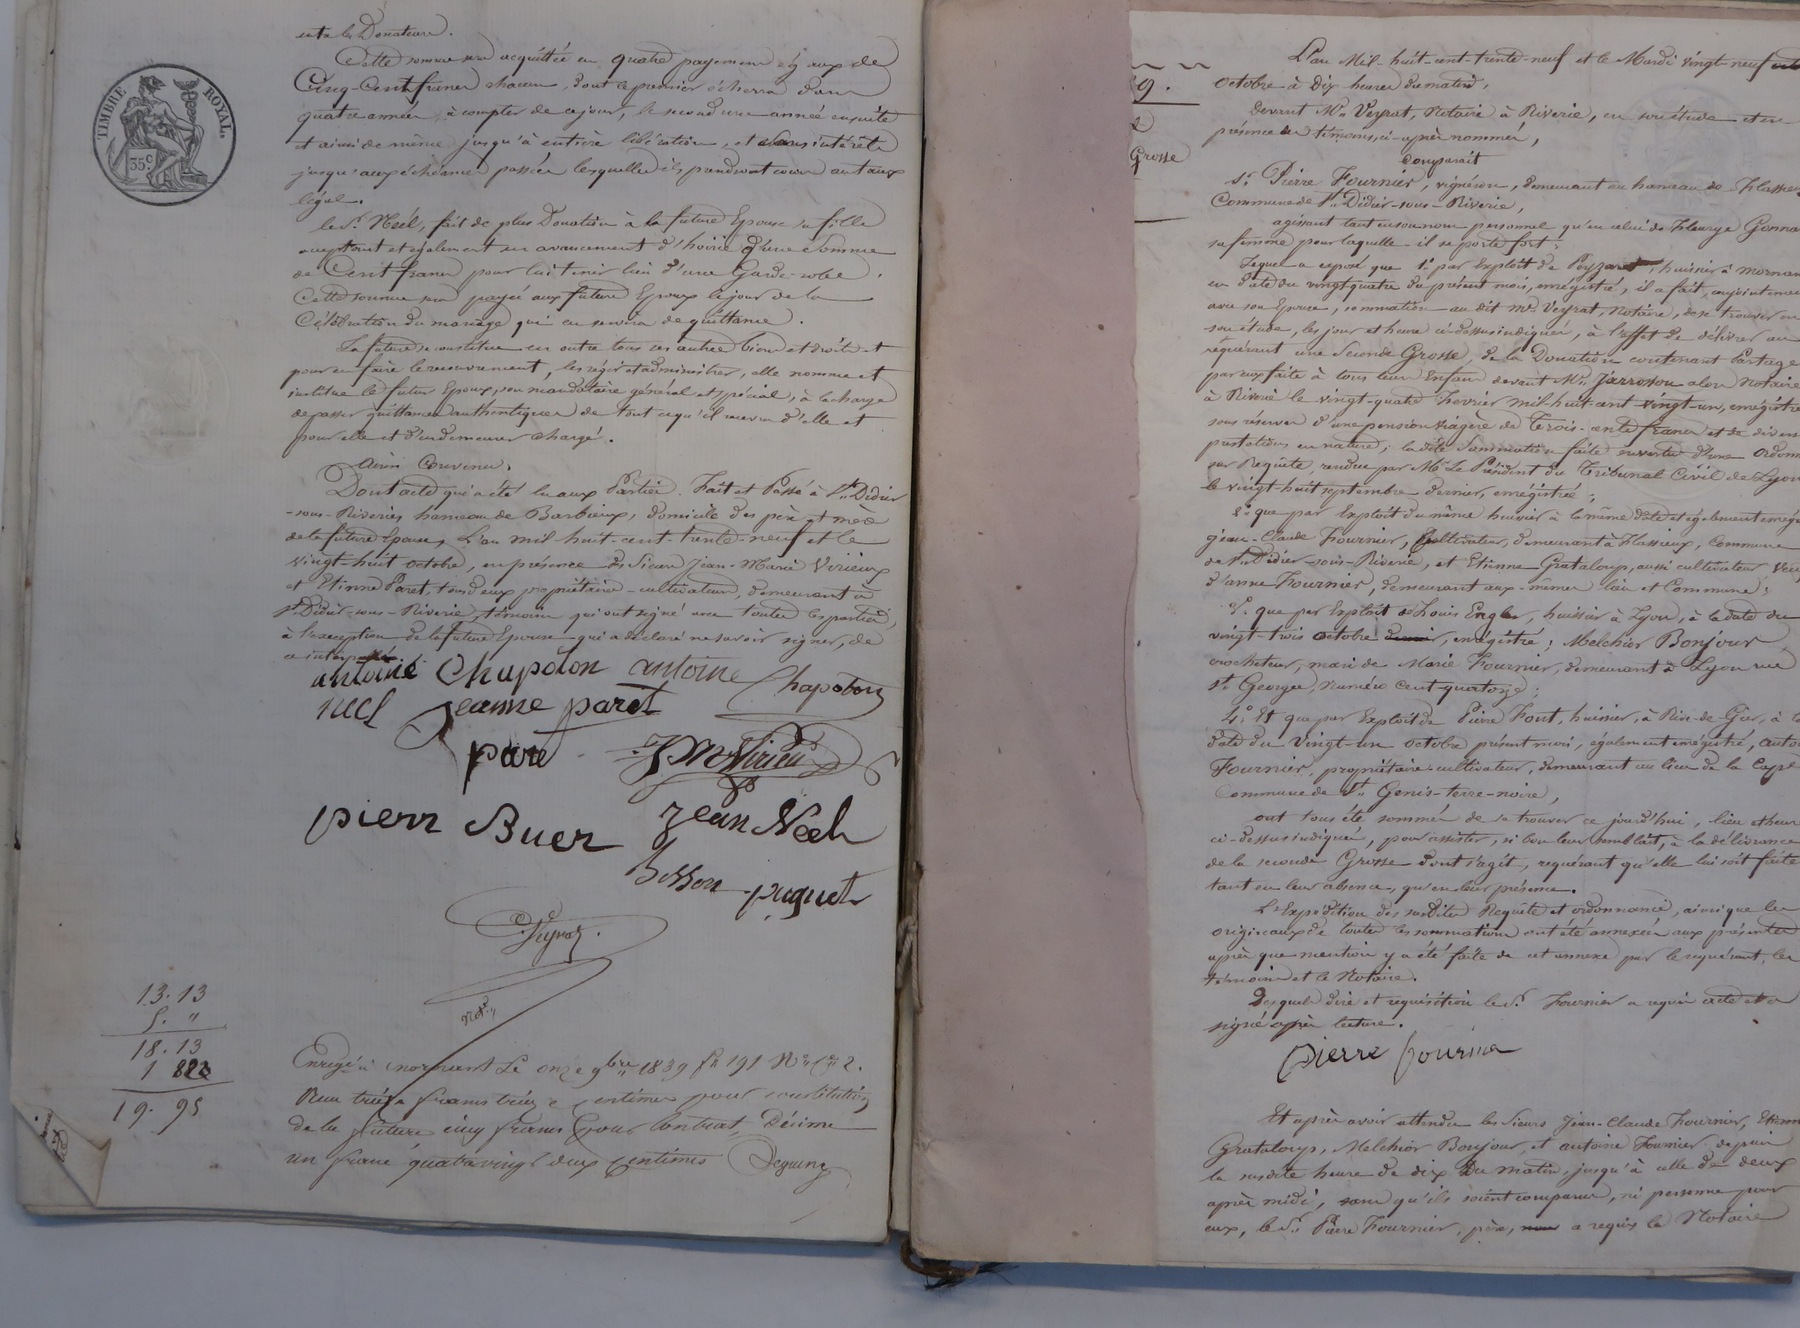 et à les Donateurs.
Cette somme sera acquittée en quatre payemens égaux de
Cinq-Cent francs chacun, dont le premier écherra dans
quatre années, à compter de ce jour, le second une année ensuite
et ainsi de même jusqu'à entière libération, et sans intérêts
jusqu'aux échéances passées lesquelles ils prendront cours au taux
légal.
le Sr. Néél, fait de plus Donation à la future Epouse sa fille
acceptant et également en avancement d'hoirie d'une Somme
de Cent francs pour lui tenir lieu d'une Garde-robe.
Cette somme sera payée aux futurs Epoux le jour de la
Célébration du mariage qui en servira de quittance.
La future se constitue en outre tous ses autres biens et droits et
pour en faire le recouvrement, les régir et administrer, elle nomme et
institue le futur Epoux, son mandataire général et spécial, à la charge
de passer quittances authentiques de tout ce qu'il recevra d'elle et
pour elle et d'en demeurer chargé.
Ainsi Convenu.
Dont acte qui a été lu aux Parties. Fait et Passé à St. Didier
-sous-Riveries hameau de Barbieux, domicile des père et mère
de la future Epouse, L'an mil-huit-cent-trente-neuf et le
vingt-huit octobre, en présence des Sieurs Jean-Marie Virieux
et Etienne Paret, tous deux propriétaires-cultivateurs, demeurant à
St. Didier-sous-Riverie, témoins qui ont signé avec toutes les parties,
à l'exception de la future Epouse qui a déclaré ne savoir signer, de
ce interpellée
antoine Chapolon antoine Chapolon
neel jeanne paret
pare JM Virieu
pierr Buer Jean Néel
Besson puguet
Veyrat
Not.re
13.13
5. "
18.13
1 82
19. 95
Enregé à mornant Le onze 9bre 1839 fo 191 Ro Ce 2.
Reçu treize francs treize centimes pour constitution
de la future cinq francs pour Contrat, Décime
un franc quatre vingt deux centimes
TIMBRE ROYAL.
35 c.
9.
Grosse
L'an Mil-huit-cent-trente-neuf et le Mardi vingt-neuf
octobre à Dix heures du matin,
Devant Me. Veyrat, Notaire à Riverie, en son étude et en
présence des témoins, ci-après nommés,
Comparait
Sr. Pierre Fournier, vigneron, demeurant au hameau de Flassieu
Commune de St. Didier-sous-Riverie,
agissant tant en son nom personnel qu'en celui de Fleurye Gonna
sa femme pour laquelle il se porte fort;
Lequel a exposé que 1° par Exploit de Peyzaret, huissier à Mornan
en date du vingt-quatre du présent mois, enrégistré, il a fait, conjointemen
avec son Epouse, sommation au dit Me. Veyrat, Notaire, de se trouver en
son étude, les jour et heure ci-dessus indiqués, à l'effet de délivrer au
requérant une Seconde Grosse, de la Donation contenant Partage
par eux faite à tous leurs Enfans devant Me. Jarrosson alors Notaire
à Riverie le vingt-quatre Fevrier mil-huit-cent vingt-un, enrégistré
sous réserves d'une pension viagère de Trois-cents francs et de divers
prestations en nature; la dite Sommation faite en vertu d'une Ordon
sur Requête, rendue par Mr. Le Président du Tribunal Civil de Lyon
le vingt-huit septembre dernier, enrégistré;
2° que par Exploit du même huissier à la même date et également enrégi
Jean-Claude Fournier, cultivateur, demeurant à Flassieux, Commune
de St. Didier-sous-Riverie, et Etienne Grataloup, aussi cultivateur, veu
d'anne Fournier, demeurant aux-mêmes lieu et Commune;
3° que par Exploit de Louis Engler, huissier à Lyon, à la date du
vingt-trois octobre, enrégistré; Melchior Bonjour
crocheteur, mari de Marie Fournier, demeurant à Lyon rue
St. Georges, Numéro Cent-quatorze;
4° Et que par Exploit de Pierre Font, huissier, à Rive-de-Gier, à la
date du vingt-un octobre présent mois, également enrégistré, anto
Fournier, propriétaire-cultivateur, demeurant au lieu de la Cape
Commune de St. Genis-terre-noire,
ont tous été sommés de se trouver ce jourd'hui, lieu et heure
ci-dessus indiqués, pour assister, si bon leur semblait, à la délivrance
de la seconde Grosse dont s'agit, requérant qu'elle lui soit faite
tant en leur absence, qu'en leur présence.
L'Expédition des susdites Requête et ordonnance, ainsi que les
originaux de toutes les sommations ont été annexés aux présentes
après que mention y a été faite de cet annexe par le requérant, les
témoins et le Notaire.
Desquels dire et requisition le Sr. Fournier a requis acte et a
signé après lecture.
pierre fournier
Et après avoir attendu les Sieurs Jean-Claude Fournier, Etienn
Grataloup, Melchior Bonjour, et antoine Fournier, depuis
la susdite heure de dix du matin, jusqu'à celle de deux
après midi, sans qu'ils soient comparus, ni personne pour
eux, le Sr. Pierre Fournier, père, a requis le Notaire